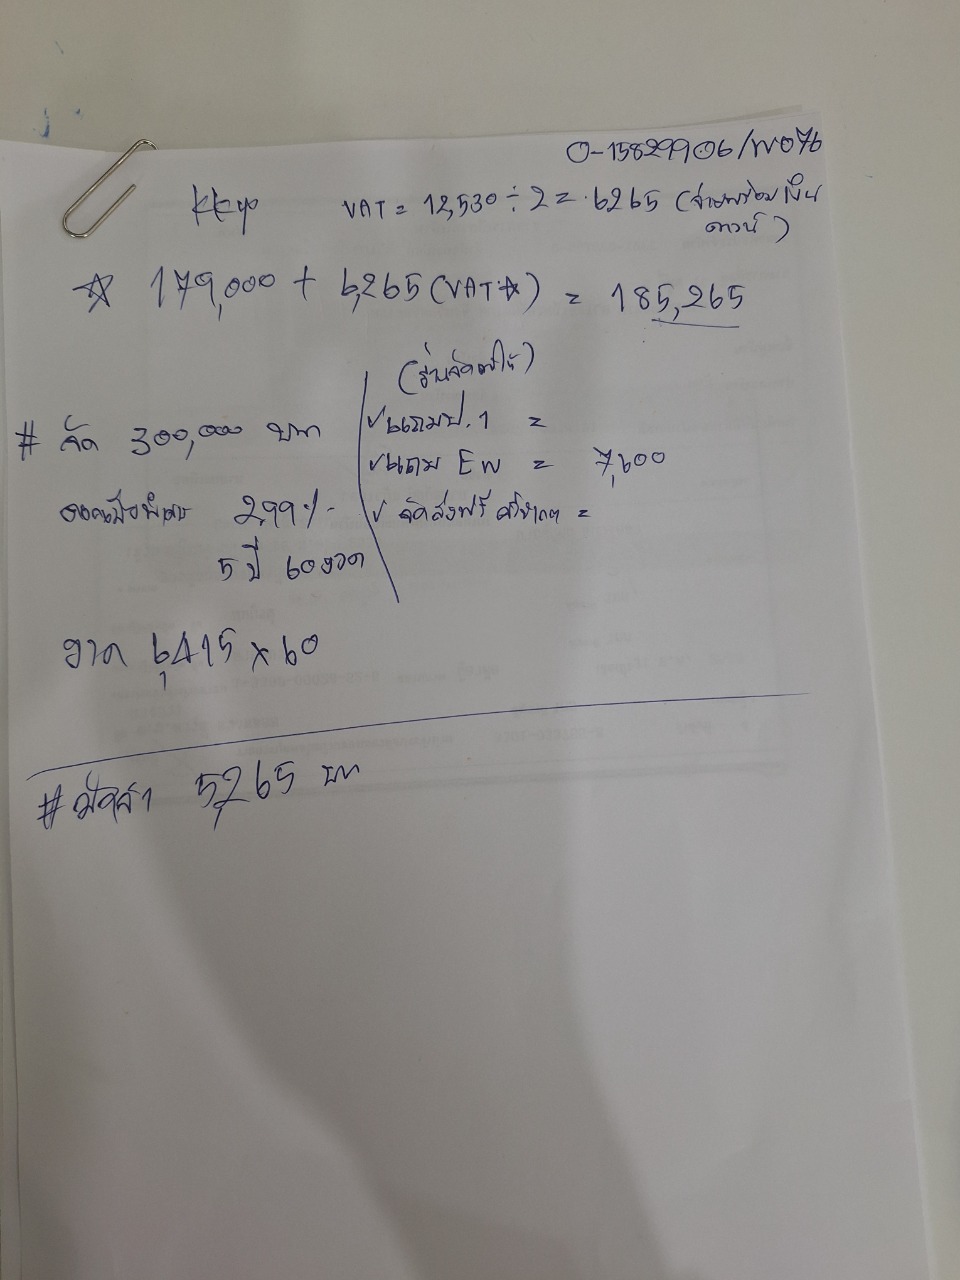 0-15829906/W076
kkp VAT = 12,530 ÷ 2 = 6265 (จ่ายพร้อมเงิน
ดาวน์)
☆ 179,000 + 6,265 (VAT☆) = 185,265
(ร้านจัดให้)
# จัด 300,000 บาท
✓แถมป.1 =
✓แถม EW = 7,600
ดอกเบี้ยพิเศษ 2.99%
✓ จัดส่งฟรี =
5 ปี 60 งวด
งวด 6,415 x 60
# มัดจำ 5,265 บาท